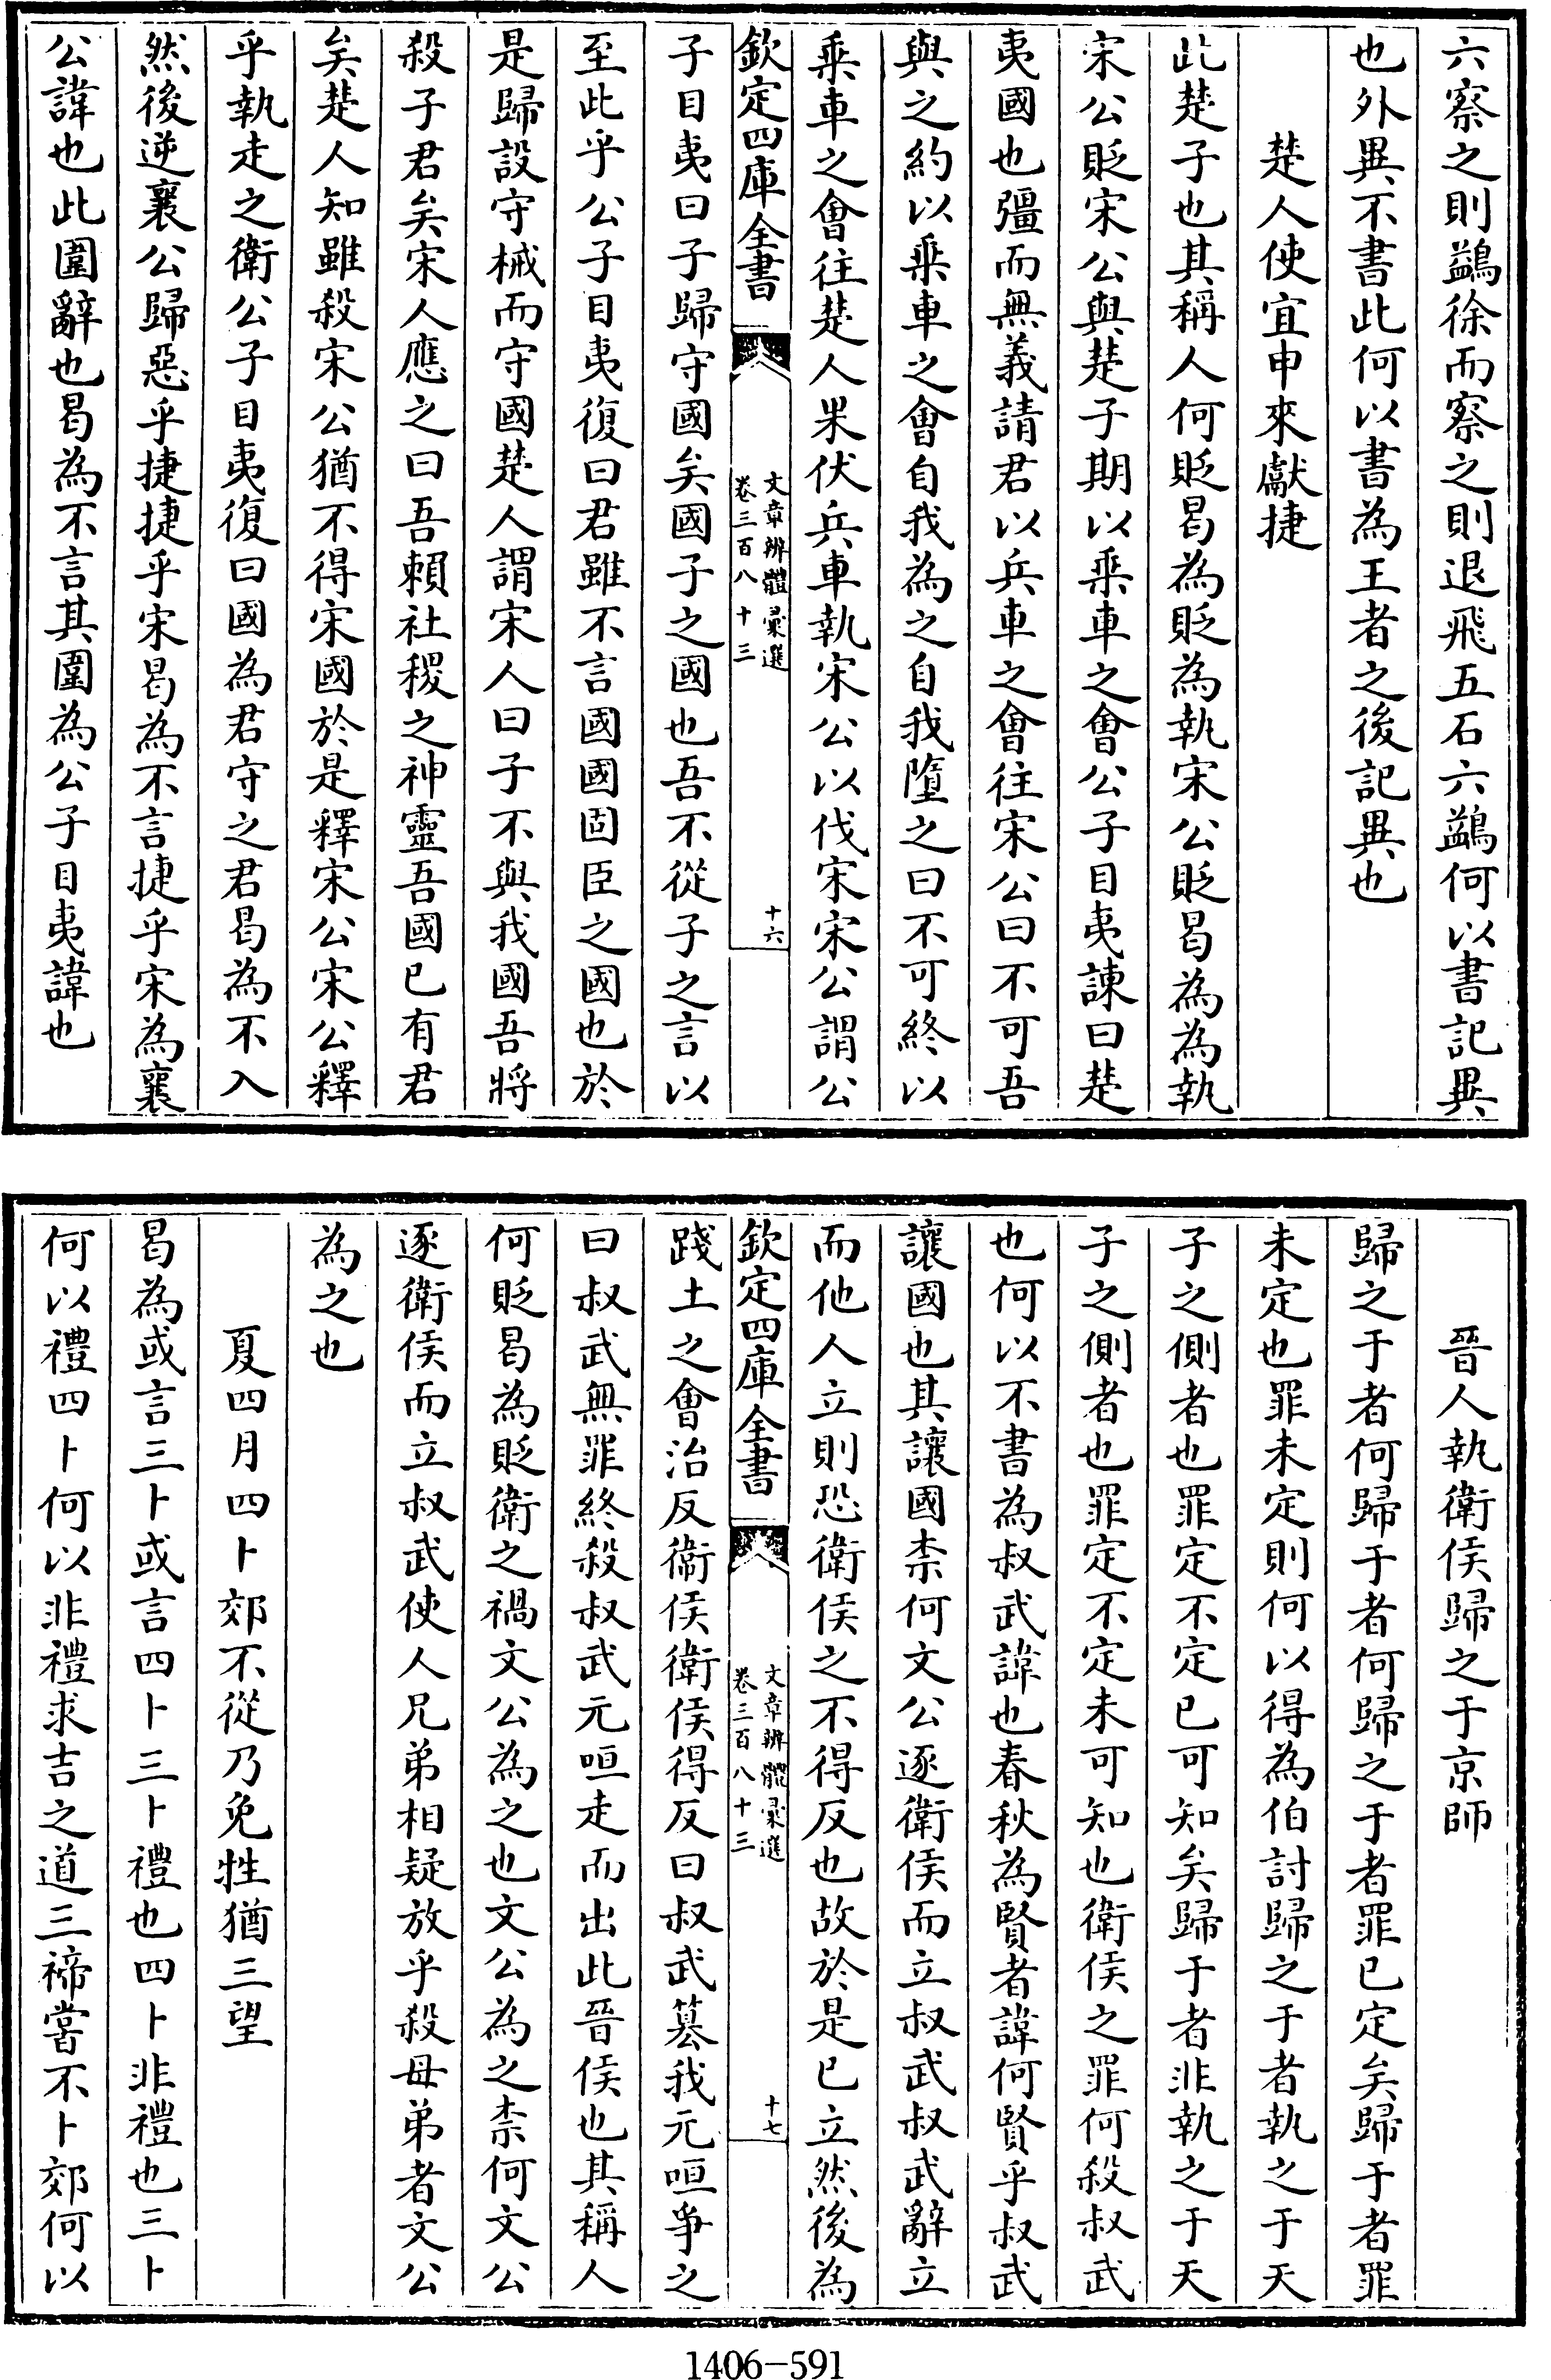 六察之則鷁徐而察之則退飛五石六鷁何以書記異
也外異不書此何以書為王者之後記異也
楚人使宜申來獻捷
此楚子也其稱人何貶曷為貶為執宋公貶曷為為執
宋公貶宋公與楚子期以乘車之會公子目夷諫曰楚
夷國也彊而無義請君以兵車之會往宋公曰不可吾
與之約以乘車之會自我為之自我墮之曰不可終以
乘車之會往楚人果伏兵車執宋公以伐宋宋公謂公
欽定四庫全書
文章辨體彙選
卷三百八十三
十六
子目夷曰子歸守國矣國子之國也吾不從子之言以
至此乎公子目夷復曰君雖不言國國固臣之國也於
是歸設守械而守國楚人謂宋人曰子不與我國吾將
殺子君矣宋人應之曰吾賴社稷之神靈吾國已有君
矣楚人知雖殺宋公猶不得宋國於是釋宋公宋公釋
乎執走之衛公子目夷復曰國為君守之君曷為不入
然後逆襄公歸惡乎捷捷乎宋曷為不言捷乎宋為襄
公諱也此圍辭也曷為不言其圍為公子目夷諱也
晉人執衛侯歸之于京師
歸之于者何歸于者何歸之于者罪已定矣歸于者罪
未定也罪未定則何以得為伯討歸之于者執之于天
子之側者也罪定不定已可知矣歸于者非執之于天
子之側者也罪定不定未可知也衛侯之罪何殺叔武
也何以不書為叔武諱也春秋為賢者諱何賢乎叔武
讓國也其讓國柰何文公逐衛侯而立叔武叔武辭立
而他人立則恐衛侯之不得反也故於是已立然後為
欽定四庫全書
文章辨體彙選
卷三百八十三
十七
踐土之會治反衛侯衛侯得反曰叔武簒我元咺爭之
曰叔武無罪終殺叔武元咺走而出此晉侯也其稱人
何貶曷為貶衛之禍文公為之也文公為之柰何文公
逐衛侯而立叔武使人兄弟相疑放乎殺母弟者文公
為之也
夏四月四卜郊不從乃免牲猶三望
曷為或言三卜或言四卜三卜禮也四卜非禮也三卜
何以禮四卜何以非禮求吉之道三禘嘗不卜郊何以
1406-591